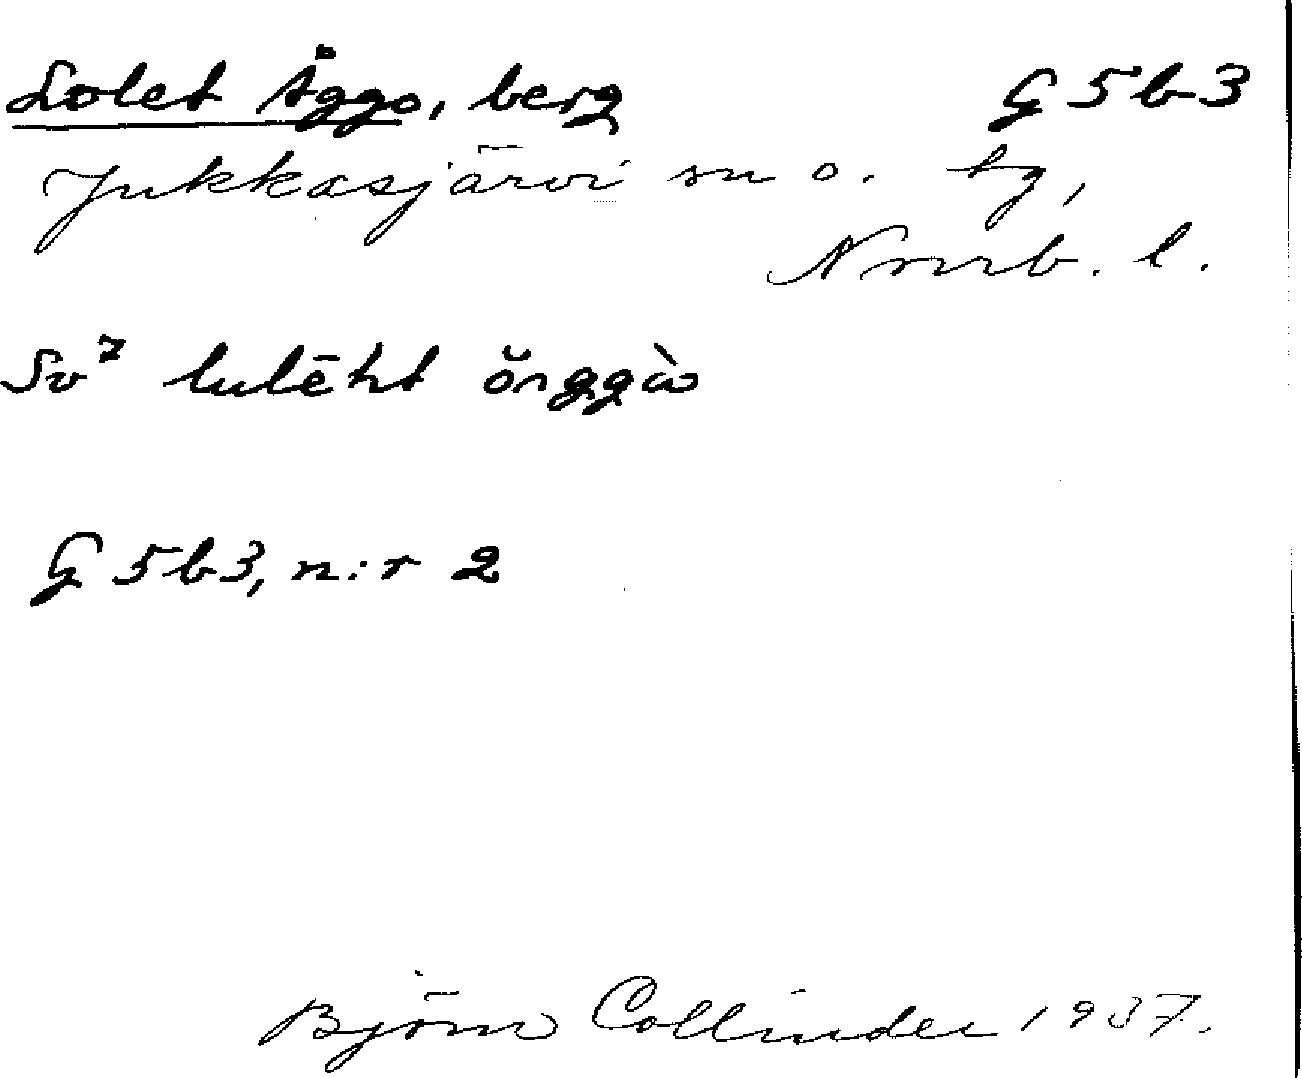 Lolet Åggo, berg G 5 b 3
Jukkasjärvi sn o. tg,
Norrb. l.
Sv⁷ lulēht ŏrggὼ
G 5 b 3, n:r 2
Björn Collinder 1937.